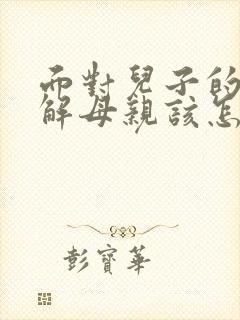 而對兒子的
解母親該怎
彭寶華